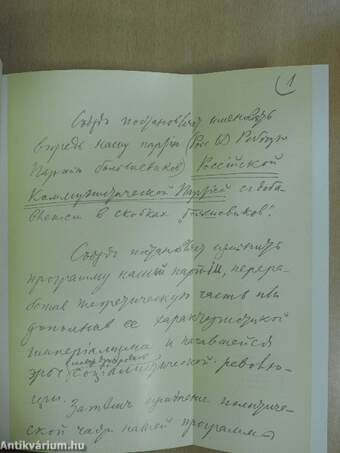 (1
Съезд постановляет именовать
впредь нашу партию (Рос. С.-Д. Рабочую
Партию большевиков) Российской
Коммунистической Партией с доба-
влением в скобках „большевиков".
Съезд постановляет изменить
программу нашей партии, перера-
ботав теоретическую часть или
дополнив ее характеристикой
империализма и начавшейся
эры международной
социалистической револю-
ции.
Затем изменение политиче-
ской части нашей программы
Antikvárium.hu